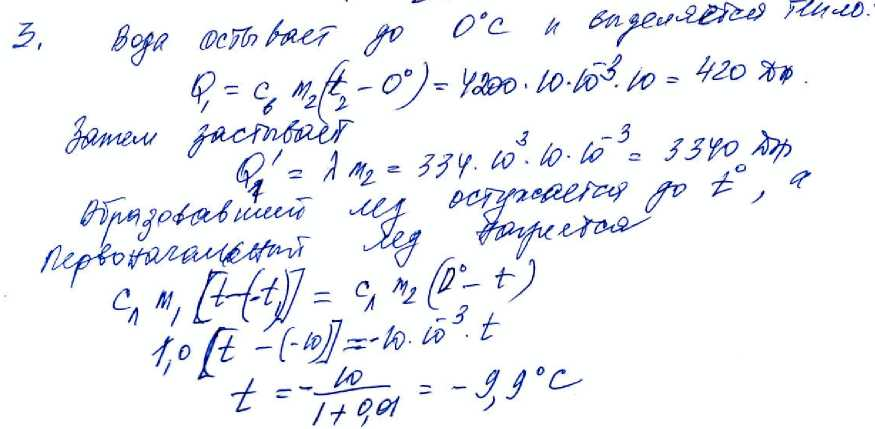 3. Вода остывает до 0°C и выделяется тепло.
Q₁ = cв m₂(t₂ - 0°) = 4200 · 10 · 10⁻³ · 10 = 420 Дж.
Затем застывает
Q₁' = λ m₂ = 334 · 10³ · 10 · 10⁻³ = 3340 Дж
Образовавший лед остужается до t°, а
Первоначальный лед нагреется
cл m₁ [t - (-t₁)] = cл m₂ (0° - t)
1,0 [t - (-10)] = -10 · 10⁻³ · t
t = - 10 / (1 + 0,01) = - 9,9°C